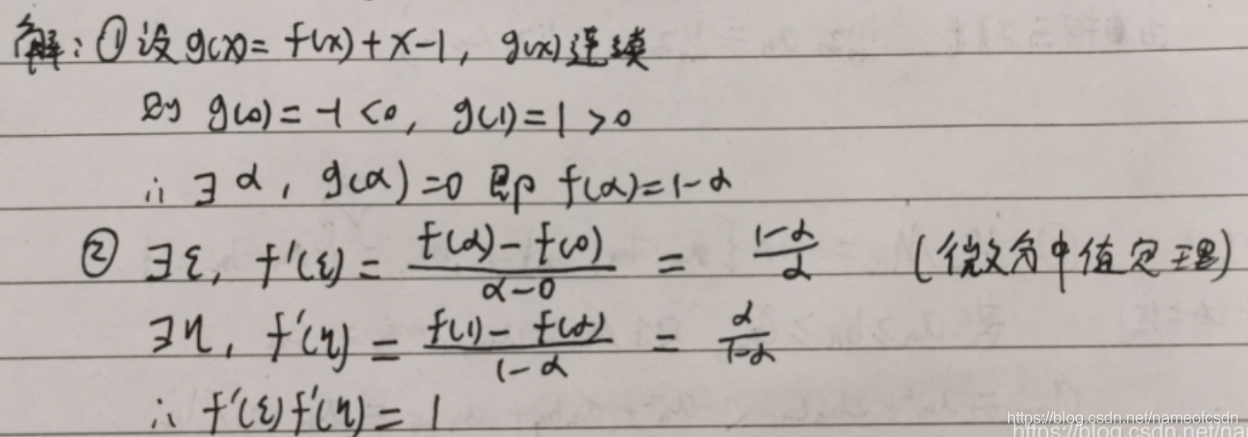 解：① 设 g(x) = f(x) + x - 1, g(x) 连续
则 g(0) = -1 < 0, g(1) = 1 > 0
∴ ∃ α, g(α) = 0 即 f(α) = 1-α
② ∃ξ, f'(ξ) = \frac{f(α) - f(0)}{α-0} = \frac{1-α}{α} (微分中值定理)
∃η, f'(η) = \frac{f(1) - f(α)}{1-α} = \frac{α}{1-α}
∴ f'(ξ)f'(η) = 1
https://blog.csdn.net/nameofcsdn
https://blog.csdn.net/na